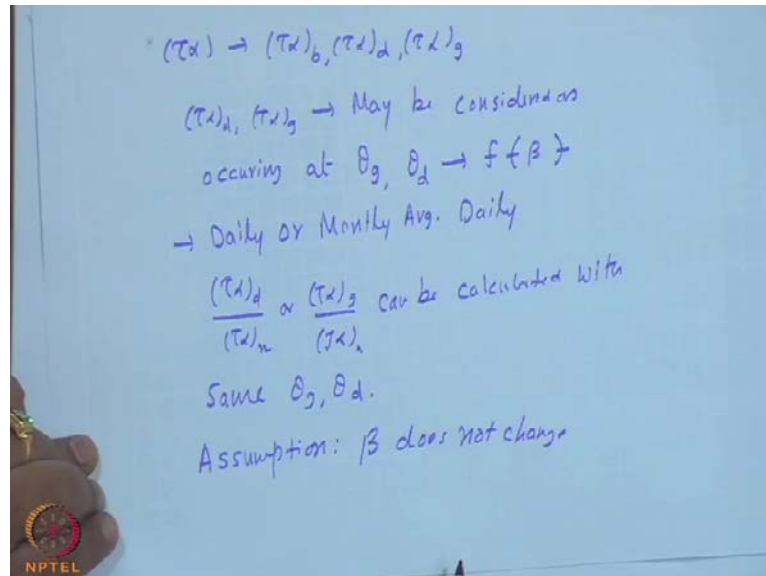 (τα) → (τα)b, (τα)d, (τα)g
(τα)d, (τα)g → May be considered as
occuring at θg, θd → f{β}
→ Daily or Monthly Avg. Daily
(τα)d/(τα)n or (τα)g/(τα)n can be calculated with
Same θg, θd.
Assumption: β does not change
NPTEL